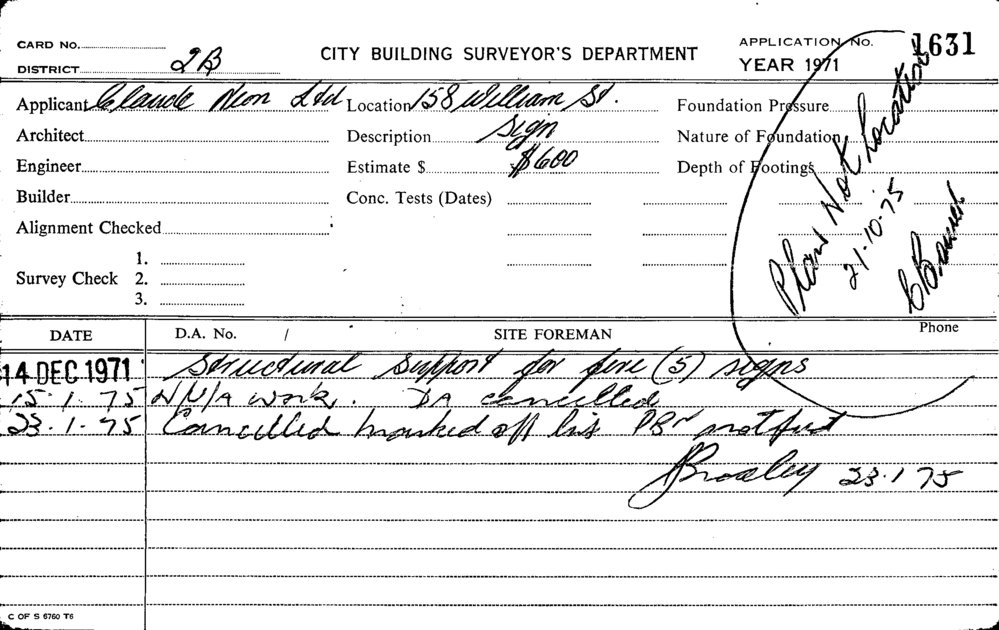 CARD No.
DISTRICT 2B
CITY BUILDING SURVEYOR'S DEPARTMENT
APPLICATION No. 1631
YEAR 1971
Applicant Claude Neon Ltd Location 158 William St. Foundation Pressure
Architect Description Sign Nature of Foundation
Engineer Estimate $ $600 Depth of Footings
Builder Conc. Tests (Dates)
Alignment Checked
Survey Check
1.
2.
3.
Plan Not
21·10·75
Phone
DATE D.A. No. / SITE FOREMAN
14 DEC 1971 Structural Support for five (5) signs
15·1·75 work. DA cancelled
23·1·75 Cancelled marked off
23·1 75
C OF S 6760 T6